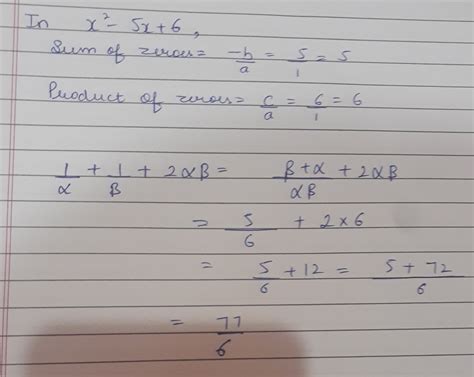 In x² - 5x + 6,
Sum of zeroes = -b/a = 5/1 = 5
Product of zeroes = c/a = 6/1 = 6
1/α + 1/β + 2αβ = β + α/αβ + 2αβ
= 5/6 + 2 × 6
= 5/6 + 12 = 5 + 72/6
= 77/6